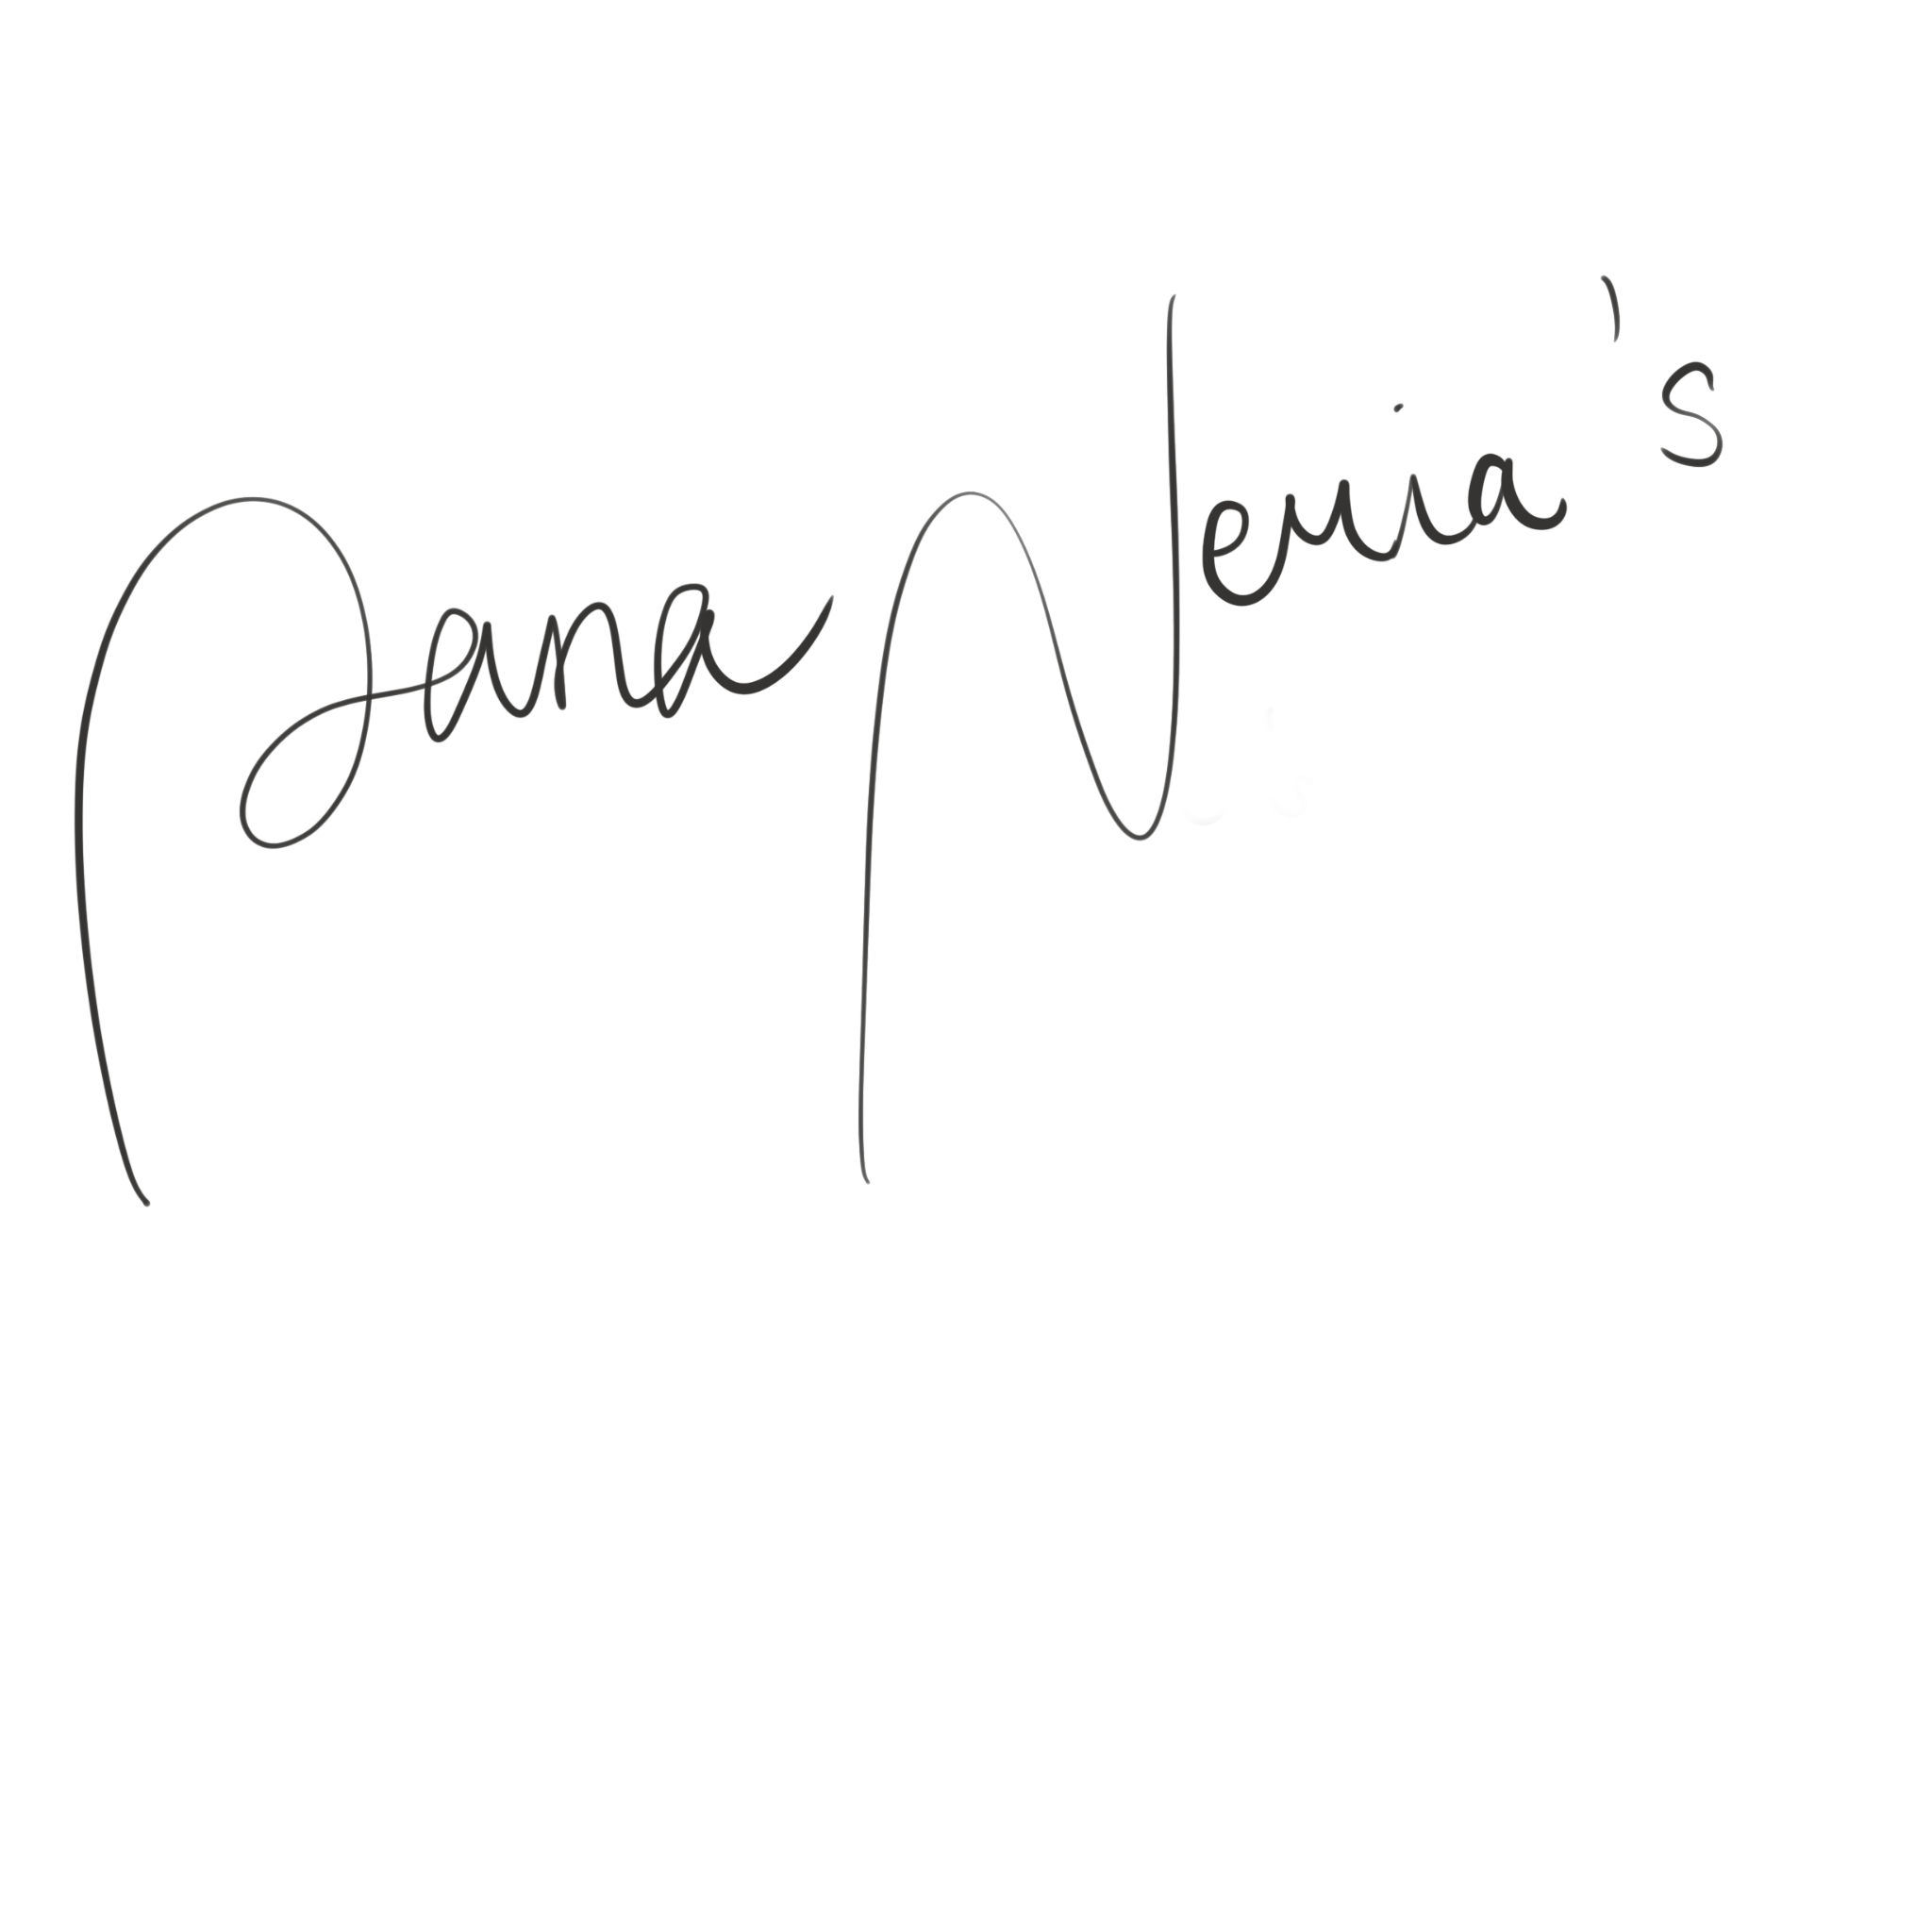 Pana Neria's